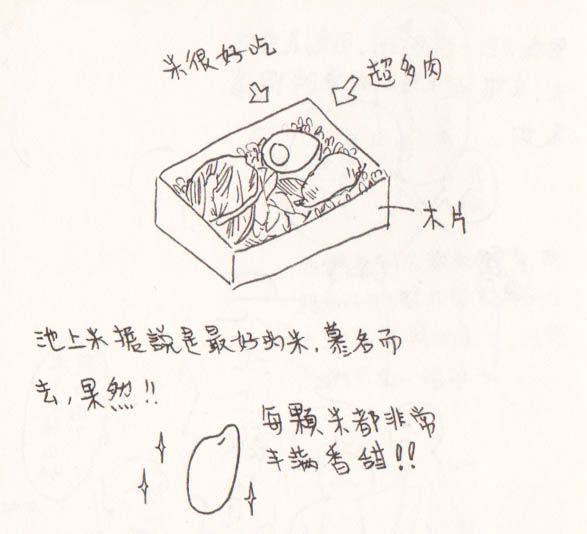 米很好吃
超多肉
木片
池上米據說是最好的米，慕名而
去，果然！！
每顆米都非常
丰滿香甜！！